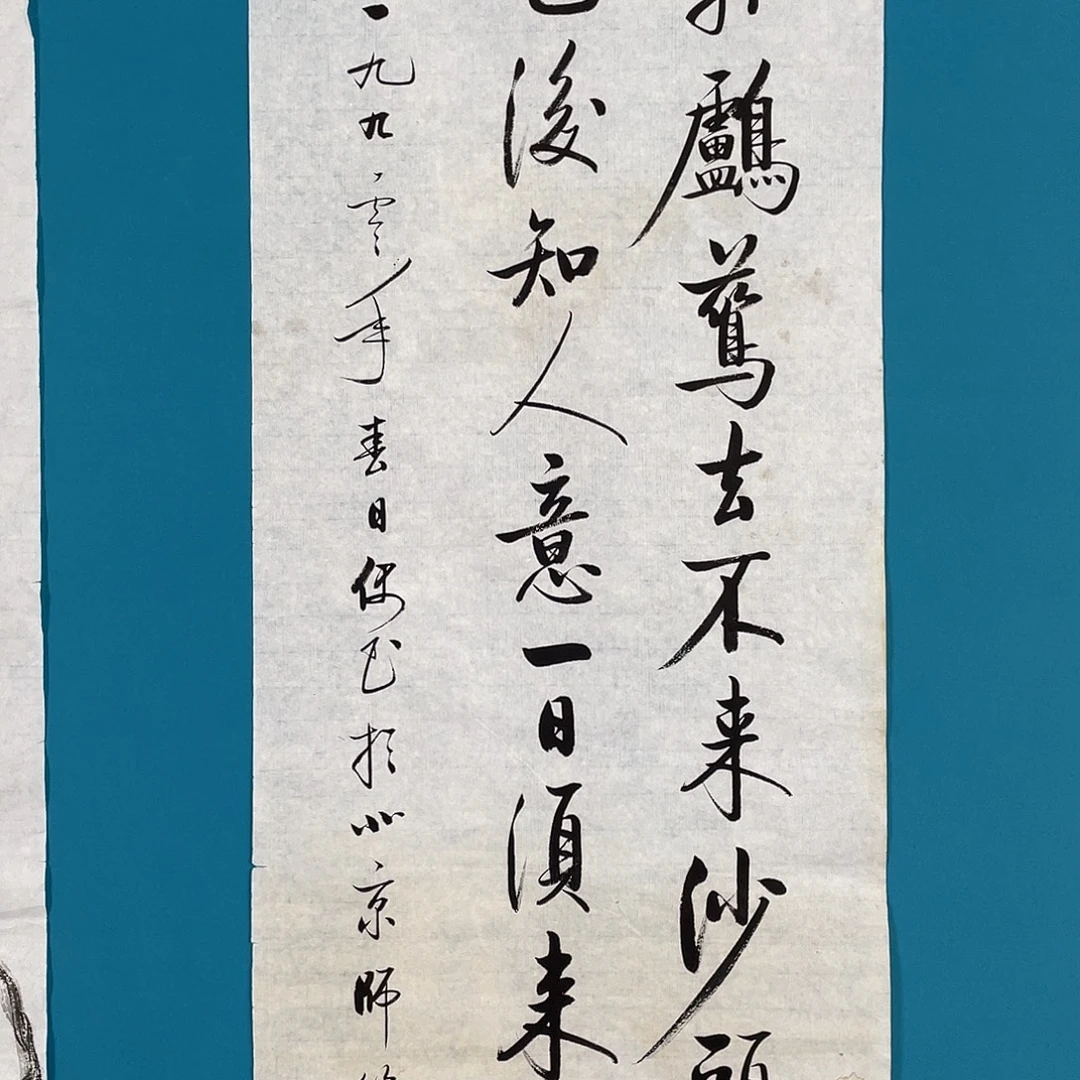 鸕鶿去不来沙
後知人意一日須来
一九九零年春日偶书於北京師